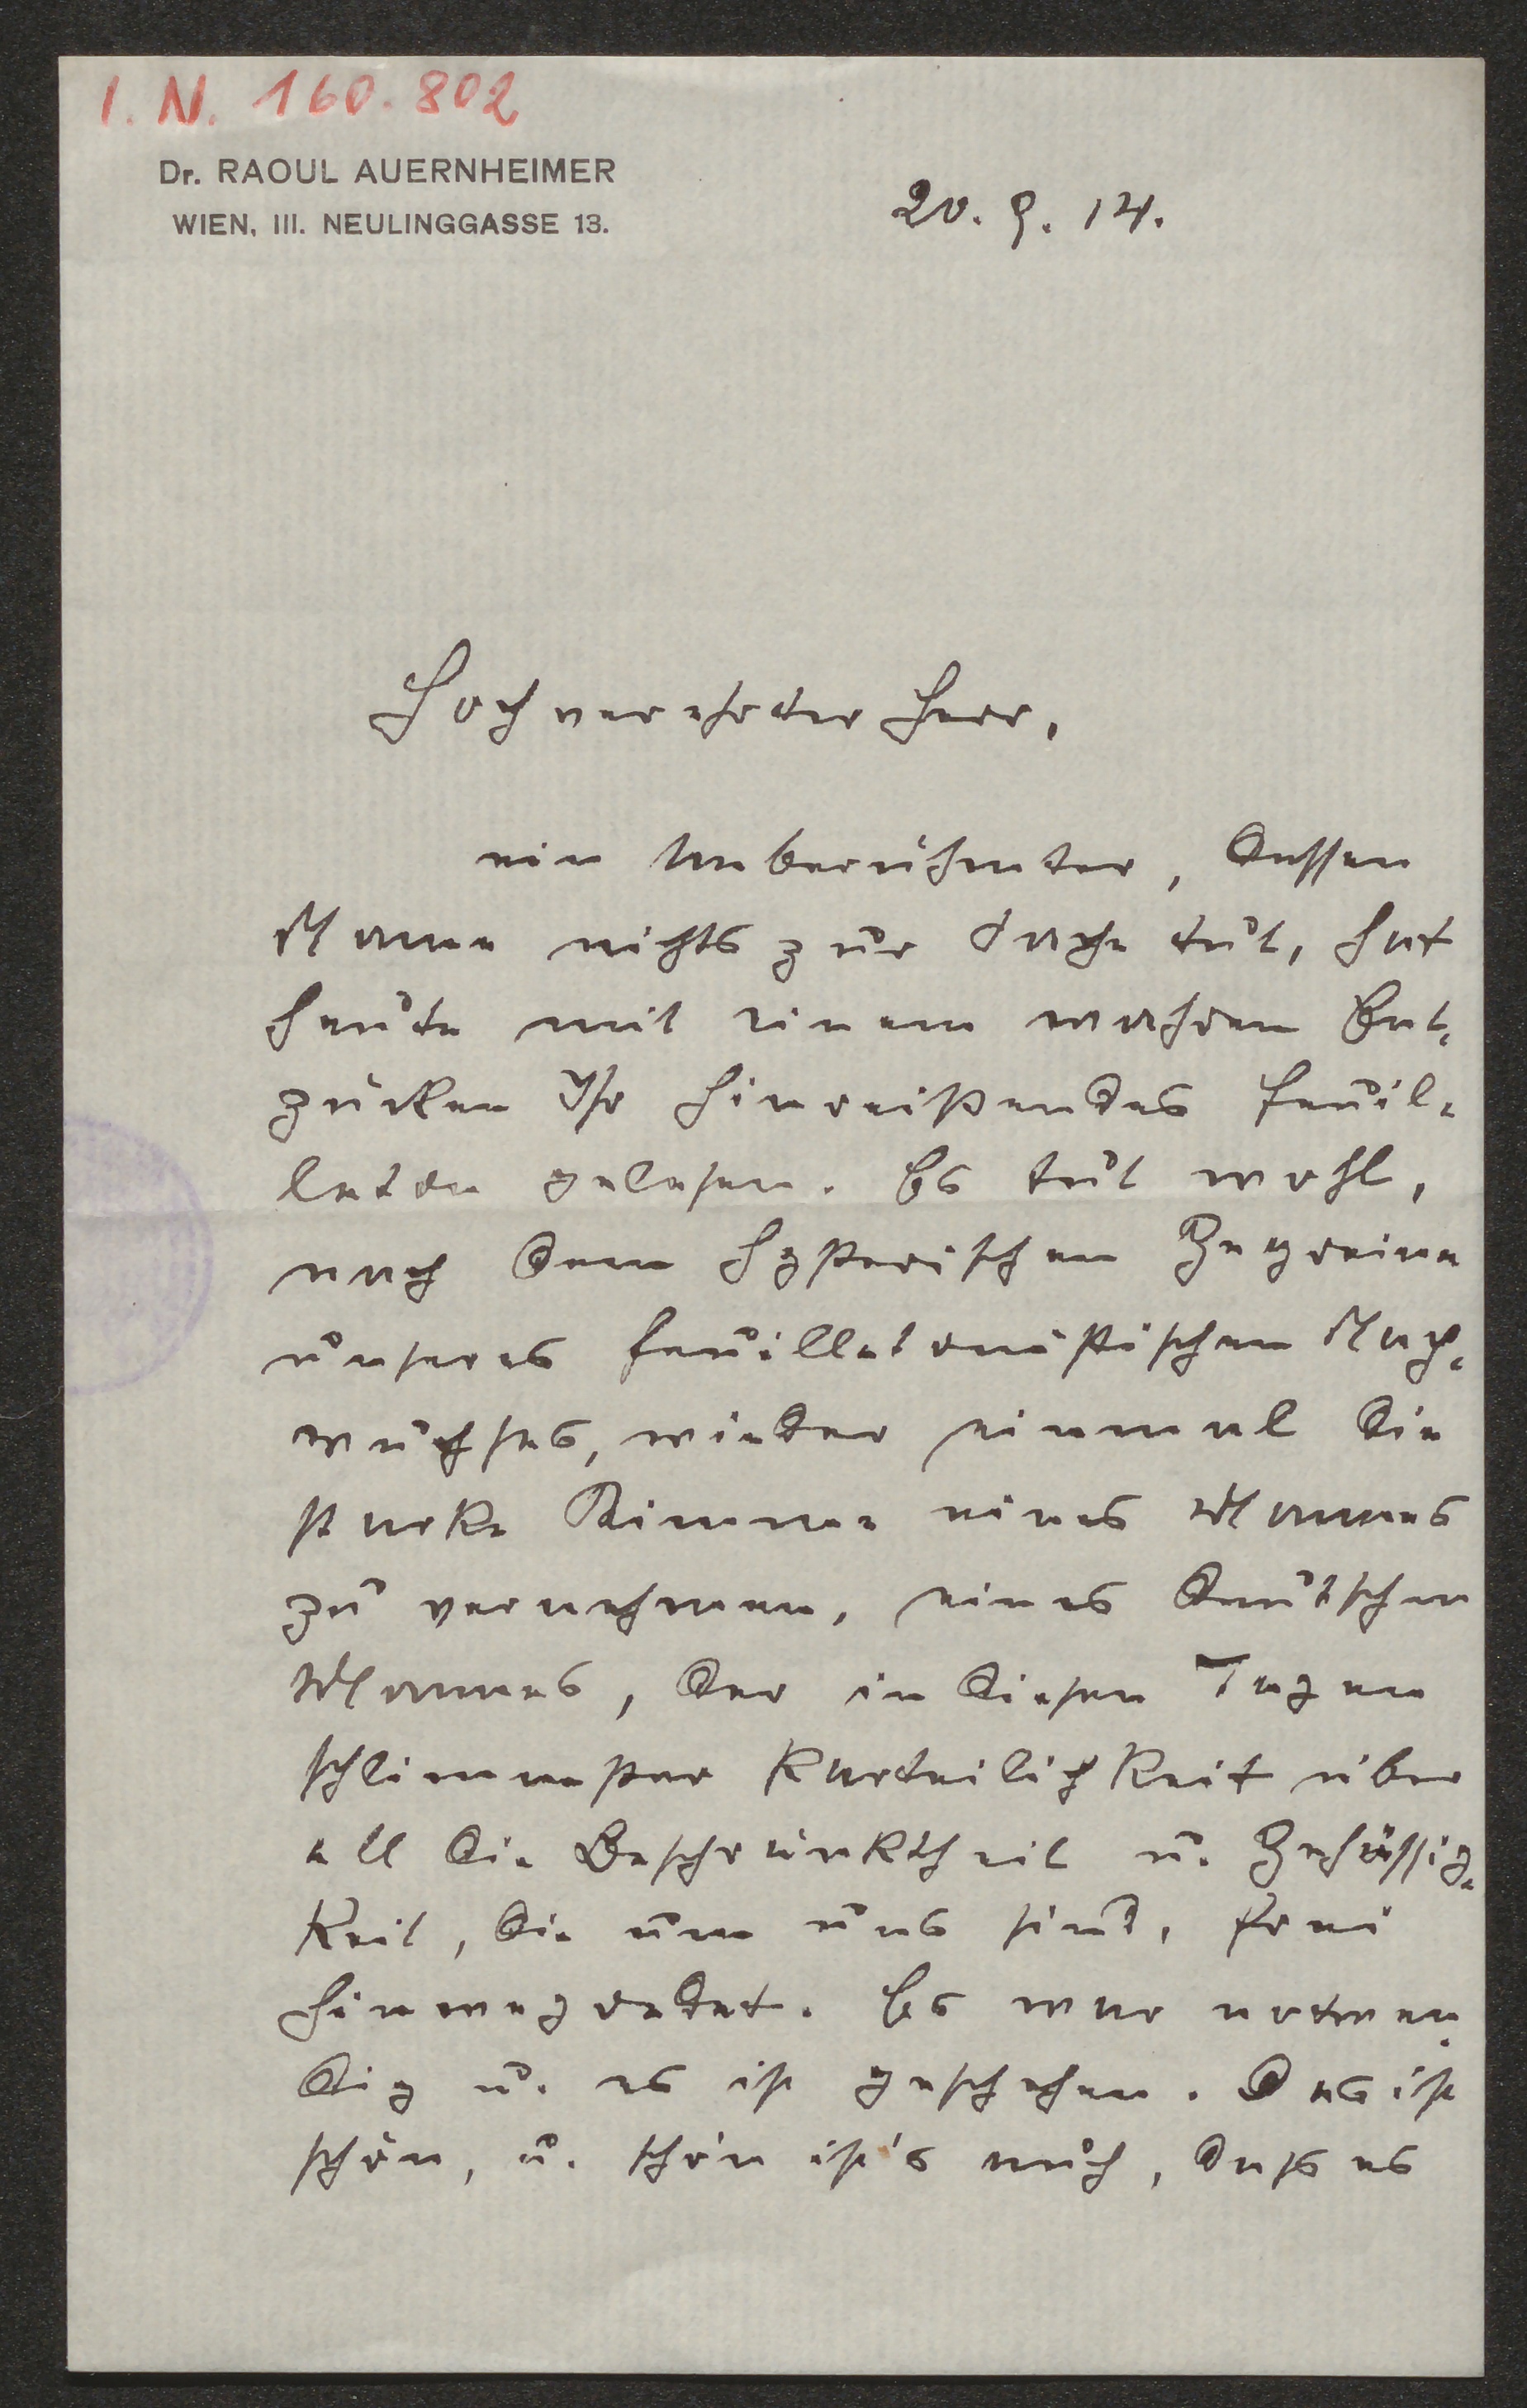 I. N. 160.802
Dr. RAOUL AUERNHEIMER
WIEN, III. NEULINGGASSE 13.
20. 9. 14.
Hochverehrter Herr,
ein Unberühmter, dessen
Name nichts zur Sache tut, hat
heute mit einem wahren Ent-
zücken Ihr hinreißendes Feuil-
leton gelesen. Es tut wohl,
nach dem hysterischen Gegreine
unseres feuilletonistischen Nach-
wuchses, wieder einmal die
starke Stimme eines Mannes
zu vernehmen, eines deutschen
Mannes, der in diesen Tagen
schlimmster Parteilichkeit über
all die Beschränktheit u. Gehässig-
keit, die um uns sind, frei
hinwegredet. Es war notwen-
dig u. es ist geschehen. Das ist
schön, u. schön ist's auch, daß es